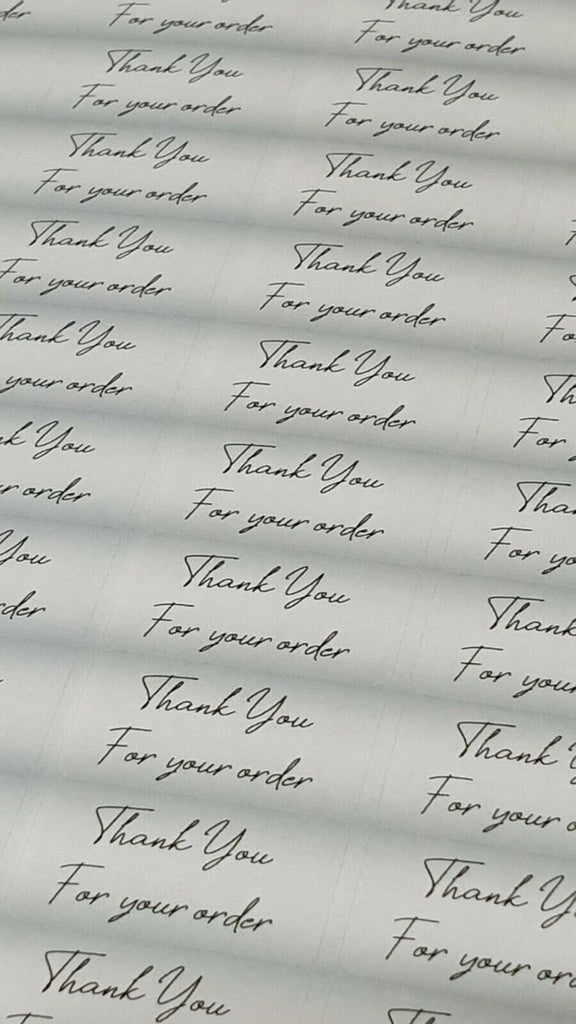 For your order
Thank You
For your order
Thank You
For your order
Thank You
For your order
Thank You
For your order
Thank You
For your order
Thank You
For your order
Thank You
For your order
Thank You
your order
Thank You
For your order
For
You
order
Thank You
For your order
For
You
Thank You
For your order
Thank
For your
Thank You
For your order
Thank
For your
Thank You
For your order
Thank
For your
Thank You